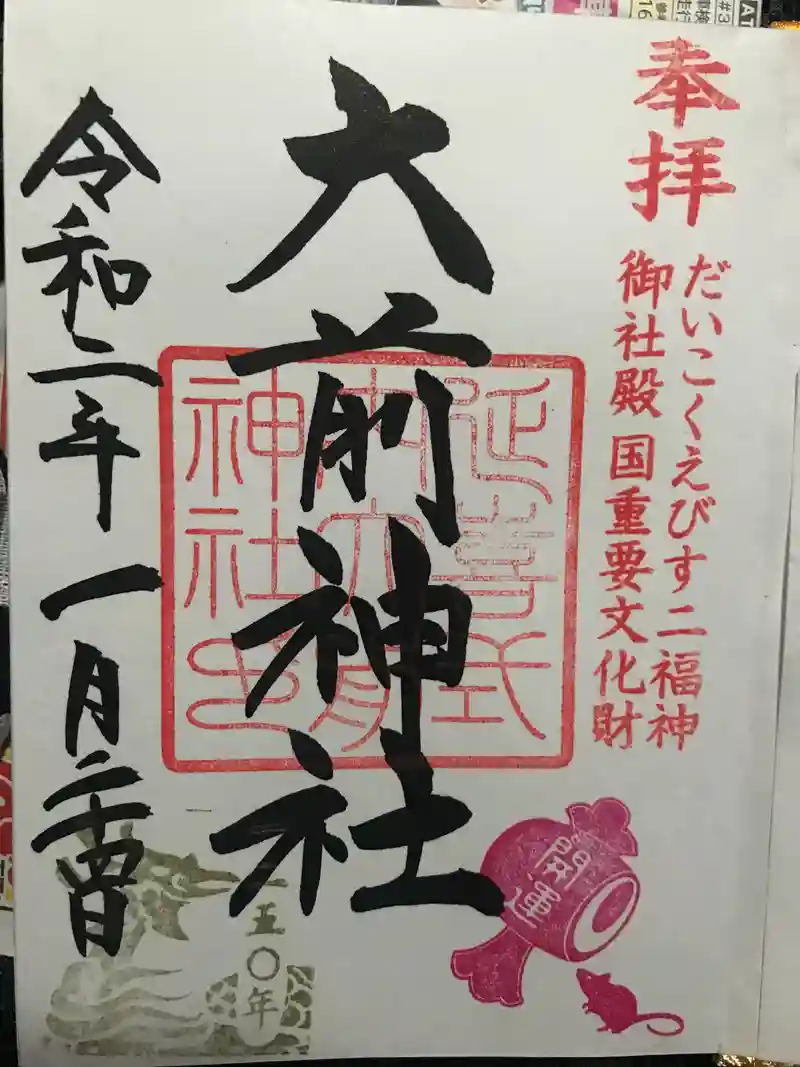 奉拝
だいこくえびす二福神
御社殿 国重要文化財
大前神社
延喜式
内大前
神社印
令和二年 一月二十四日
開運
一五〇年